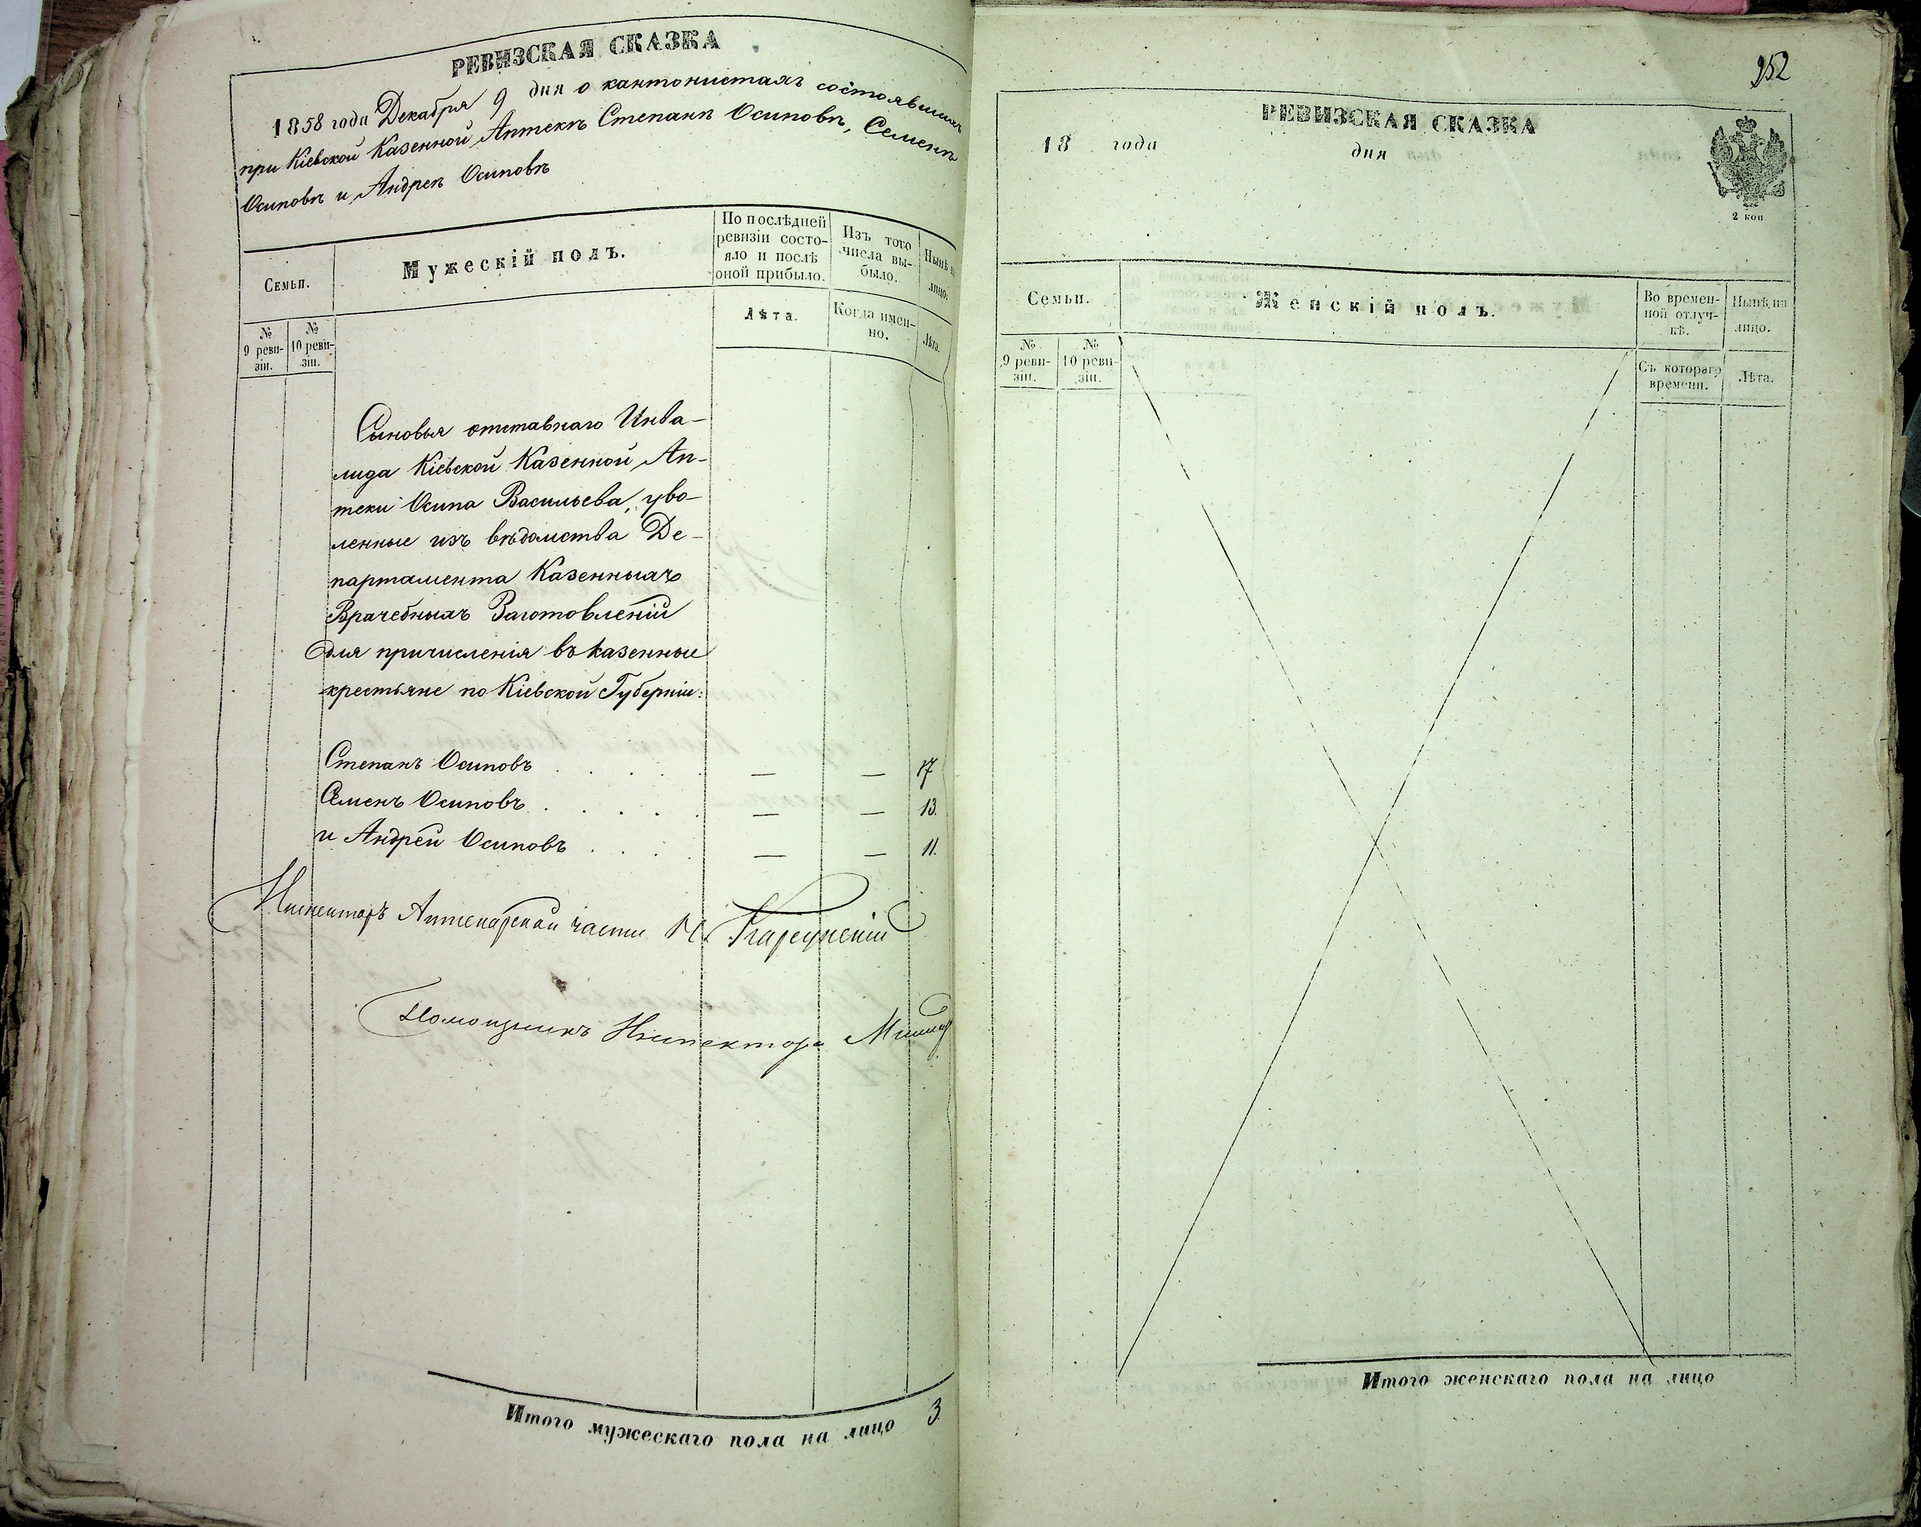 РЕВИЗСКАЯ СКАЗКА
1858 года Декабря 9 дня о кантонистахъ состоявшихъ
при Кіевской Казенной Аптекѣ Степанѣ Осиповѣ, Семенѣ
Осиповѣ и Андреѣ Осиповѣ
Семьи.
Мужескій полъ.
По послѣдней
ревизіи состо-
яло и послѣ
оной прибыло.
Изъ того
числа вы-
было.
Нынѣ на
лицо.
№
9 реви-
зіи.
№
10 реви-
зіи.
Лѣта.
Когда имен-
но.
Лѣта.
Сыновья отставнаго Инва-
лида Кіевской Казенной Ап-
теки Осипа Васильева, уво-
ленные изъ вѣдомства Де-
партамента Казенныхъ
Врачебныхъ Заготовленій
для причисленія въ казенные
крестьяне по Кіевской Губерніи:
Степанъ Осиповъ . . . . — — 17
Семенъ Осиповъ . . . . . — — 13.
и Андрей Осиповъ . . . . — — 11.
Инспекторъ Аптекарской части
Помощникъ Инспектора
Итого мужескаго пола на лицо 3.
952
РЕВИЗСКАЯ СКАЗКА
18 года дня
2 коп
Семьи.
Женскій полъ.
Во времен-
ной отлуч-
кѣ.
Нынѣ на
лицо.
№
9 реви-
зіи.
№
10 реви-
зіи.
Съ котораго
времени.
Лѣта.
Итого женскаго пола на лицо